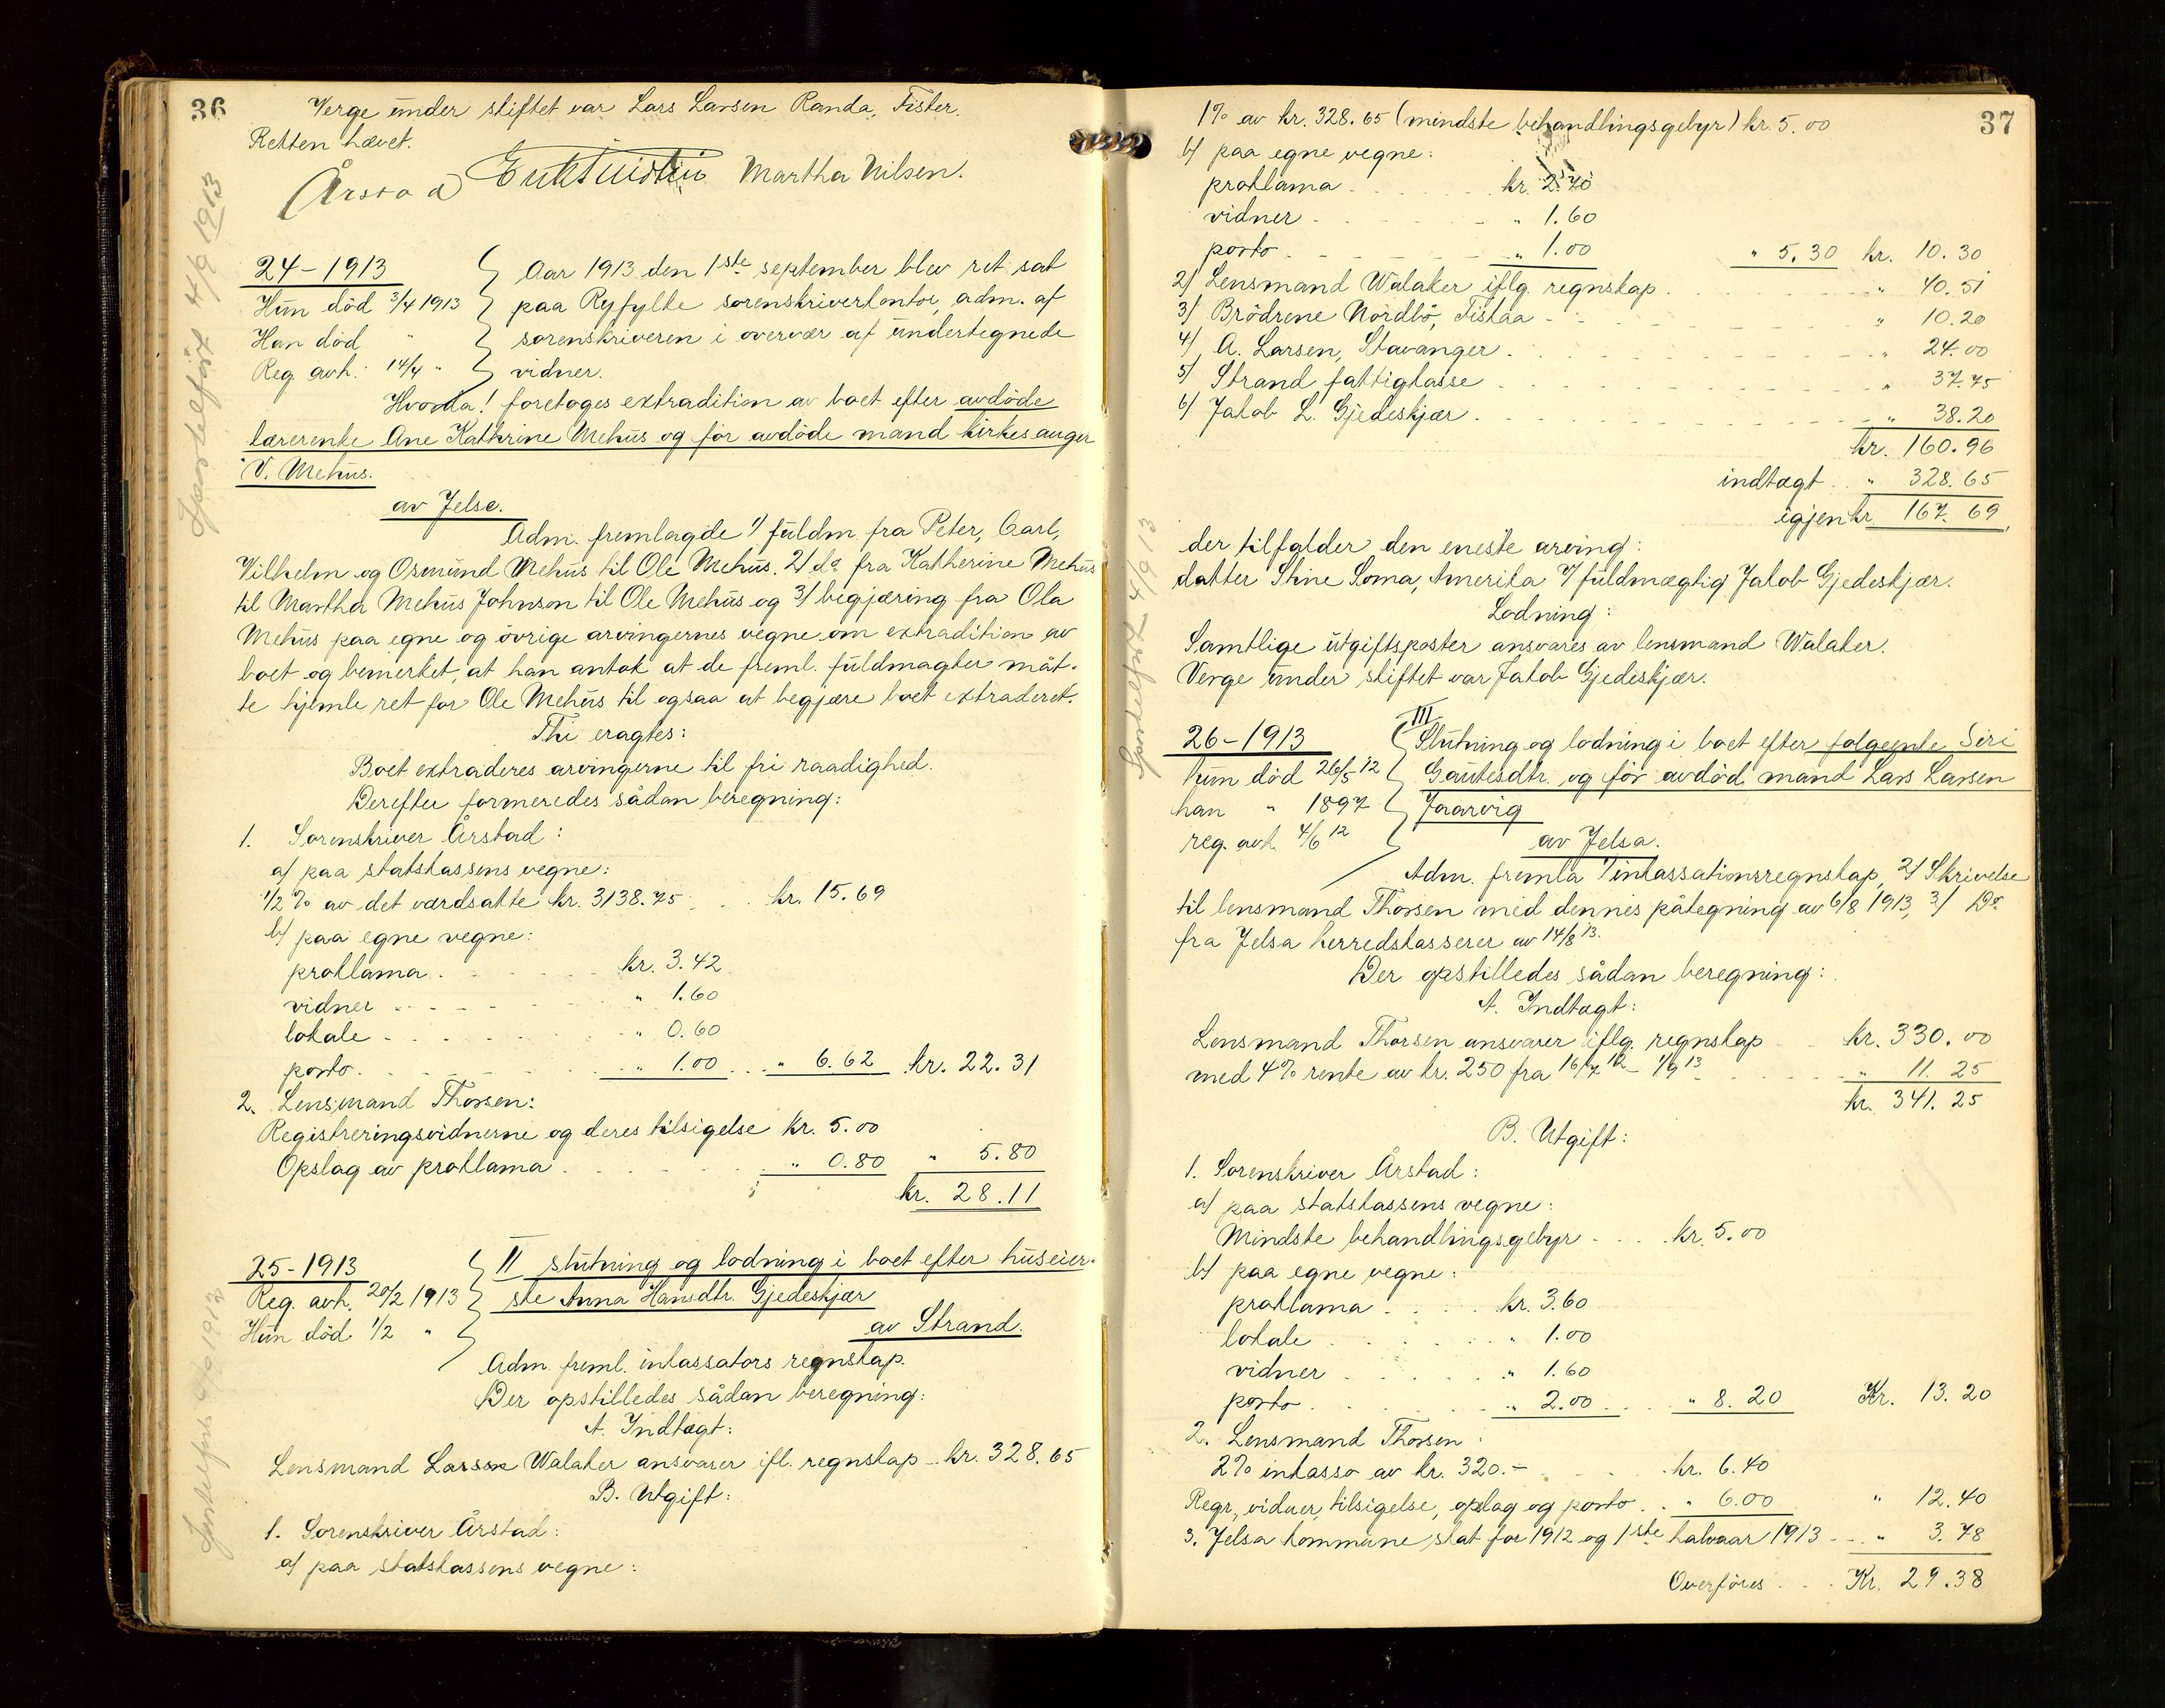 36
Verge under skiftet var Lars Larsen Randa, Fister.
Retten hævet.
Årstad Martha Nilsen.
24-1913
Hun död 3/4 1913
Han död "
Reg. avh. 14/4 "
Aar 1913 den 1ste september blev ret sat
paa Ryfylke sorenskriverkontor, adm. af
sorenskriveren i overvær af undertegnede
vidner.
Hvorda! foretoges extradition av boet efter avdöde
lærerenke Ane Kathrine Mehus og för avdöde mand kirkesanger
V. Mehus.
av Jelse.
Adm. fremlagde 1/ fuldm fra Peter, Carl,
Vilhelm og Osmund Mehus til Ole Mehus. 2/ do fra Katherine Mehus
til Martha Mehus Johnson til Ole Mehus og 3/ begjæring fra Ola
Mehus paa egne og övrige arvingernes vegne om extradition av
boet og bemerket, at han antok at de freml. fuldmagter måt-
te hjemle ret for Ole Mehus til ogsaa at begjære boet extraderet.
Thi eragtes:
Boet extraderes arvingerne til fri raadighed.
Derefter formeredes sådan beregning:
1. Sorenskriver Årstad:
a/ paa statskassens vegne:
1/2 % av det værdsatte kr. 3138.75 . . kr. 15.69
b/ paa egne vegne:
proklama . . . kr. 3.42
vidner . . . " 1.60
lokale . . . " 0.60
porto . . . " 1.00 . . " 6.62 kr. 22.31
2. Lensmand Thorsen:
Registreringsvidnerne og deres tilsigelse kr. 5.00
Opslag av proklama . . . " 0.80 " 5.80
kr. 28.11
25-1913
Reg. avh. 20/2 1913
Hun död 1/2 "
II slutning og lodning i boet efter huseier-
ske Anna Hansdtr. Gjedeskjær
av Strand.
Adm. freml. inkassators regnskap.
Der opstilledes sådan beregning:
A. Indtægt:
Lensmand Walaker ansvarer ifl. regnskap - kr. 328.65
B. Utgift:
1. Sorenskriver Årstad:
a/ paa statskassens vegne:
37
1% av kr. 328.65 (mindste behandlingsgebyr) kr. 5.00
b/ paa egne vegne:
proklama . . . kr. 2.70
vidner . . . " 1.60
porto . . . " 1.00 " 5.30 kr. 10.30
2/ Lensmand Walaker iflg. regnskap . . . " 40.51
3/ Brödrene Nordbö, Fiskaa . . . " 10.20
4/ A. Larsen, Stavanger . . . " 24.00
5/ Strand fattigkasse . . . " 37.75
6/ Jakob L. Gjedeskjær . . . " 38.20
kr. 160.96
indtægt . " 328.65
igjen kr. 167.69
der tilfalder den eneste arving:
datter Stine Soma, Amerika v/ fuldmægtig Jakob Gjedeskjær.
Lodning:
Samtlige utgiftsposter ansvares av lensmand Walaker.
Verge under skiftet var Jakob Gjedeskjær.
26-1913
hun död 26/5 12
han " 1897
reg. avh. 4/6 12
III
Slutning og lodning i boet efter folgeenke Siri
Gautesdtr. og för avdöd mand Lars Larsen
Jaarvig
av Jelsa.
Adm. fremla 1/ inkassationsregnskap, 2/ Skrivelse
til lensmand Thorsen med dennes påtegning av 6/8 1913, 3/ Do
fra Jelsa herredskasserer av 14/8 13.
Der opstilledes sådan beregning:
A. Indtægt:
Lensmand Thorsen ansvarer iflg. regnskap . . kr. 330.00
med 4% rente av kr. 250 fra 16/7 12 - 1/9 13 . . . " 11.25
kr. 341.25
B. Utgift:
1. Sorenskriver Årstad:
a/ paa statskassens vegne:
Mindste behandlingsgebyr . . . kr. 5.00
b/ paa egne vegne:
proklama . . . kr. 3.60
lokale . . . " 1.00
vidner . . . " 1.60
porto . . . " 2.00 . . " 8.20 Kr. 13.20
2. Lensmand Thorsen:
2% inkasso av kr. 320.- . . . kr. 6.40
Regr., vidner, tilsigelse, opslag og porto . . " 6.00 " 12.40
3. Jelsa kommune skat for 1912 og 1ste halvaar 1913 . . " 3.78
Overföres . . . Kr. 29.38